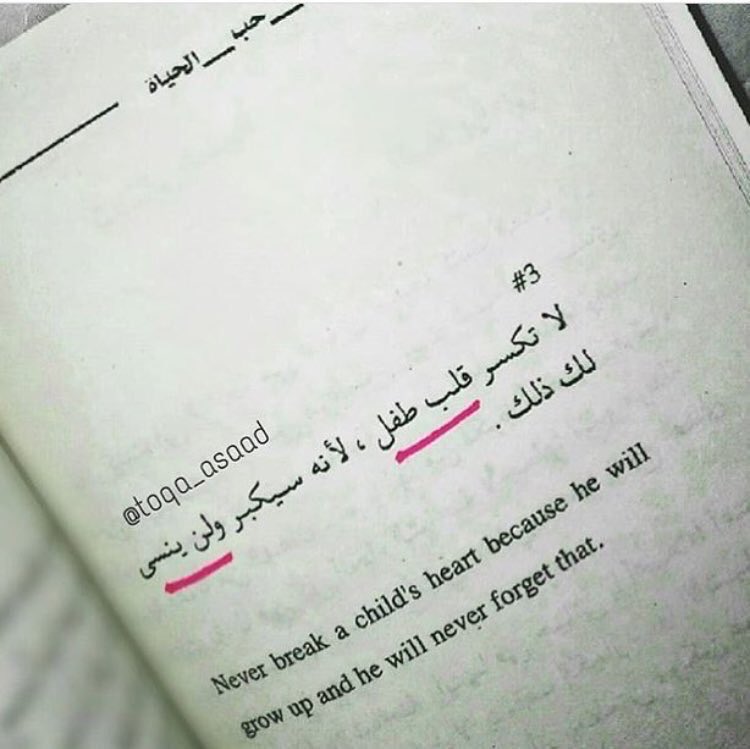 حب الحياة
#3
لا تكسر قلب طفل ، لأنه سيكبر ولن ينسى
لك ذلك .
@toqa_asaad
Never break a child's heart because he will
grow up and he will never forget that.